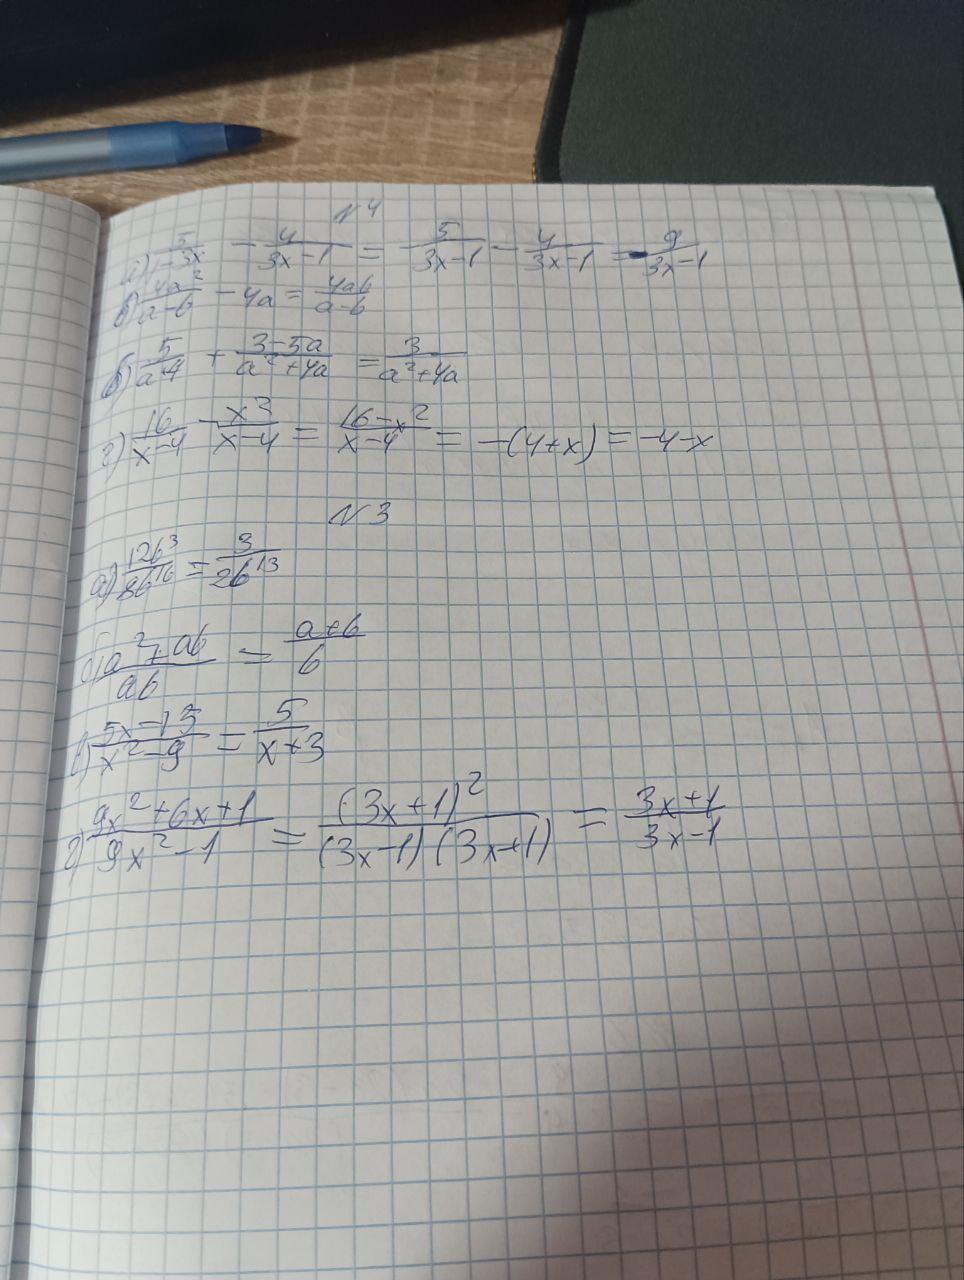 N4
а) 5/1-3x - 4/3x-1 = 5/3x-1 - 4/3x-1 = -9/3x-1
б) 4a²/a-b - 4a = 4ab/a-b
в) 5/a+4 + 3-5a/a²+4a = 3/a²+4a
г) 16/x-4 - x²/x-4 = 16-x²/x-4 = -(4+x) = -4-x
N3
а) 12b³/8b¹⁶ = 3/2b¹³
б) a²+ab/ab = a+b/b
в) 5x-15/x²-9 = 5/x+3
г) 9x²+6x+1/9x²-1 = (3x+1)²/(3x-1)(3x+1) = 3x+1/3x-1